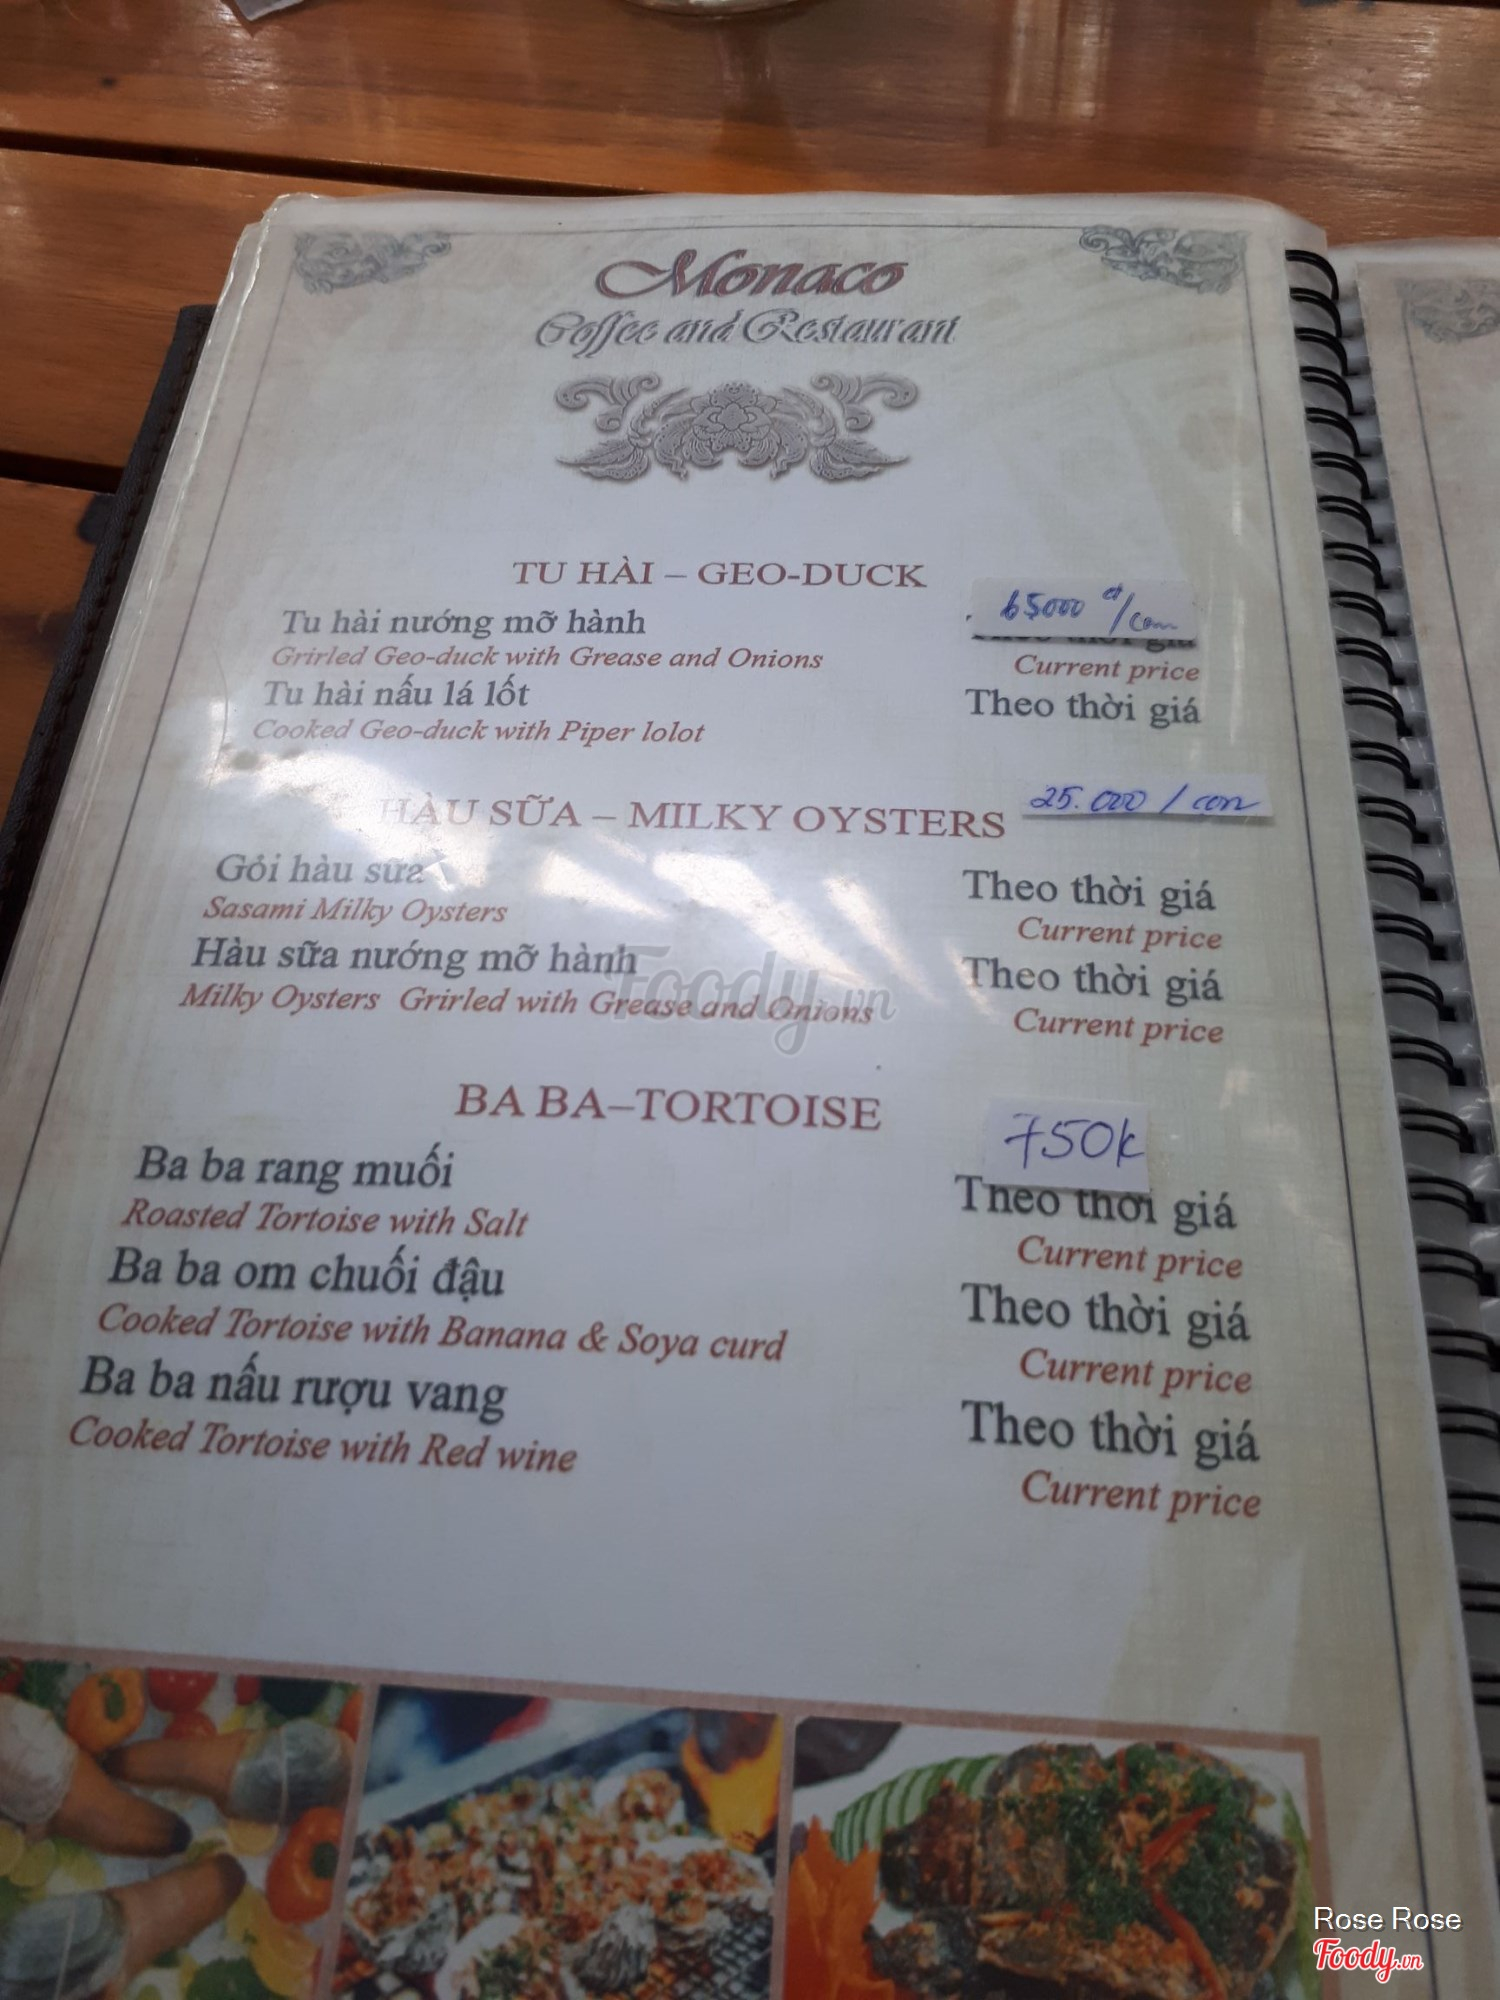 Monaco
Coffee and Restaurant
TU HÀI – GEO-DUCK
Tu hài nướng mỡ hành 65000 đ/con
Grirled Geo-duck with Grease and Onions Current price
Tu hài nấu lá lốt Theo thời giá
Cooked Geo-duck with Piper lolot
HÀU SỮA – MILKY OYSTERS 25.000 / con
Gỏi hàu sữa Theo thời giá
Sasami Milky Oysters Current price
Hàu sữa nướng mỡ hành Theo thời giá
Milky Oysters Grirled with Grease and Onions Current price
Foody.vn
BA BA–TORTOISE
750k
Ba ba rang muối Theo thời giá
Roasted Tortoise with Salt Current price
Ba ba om chuối đậu Theo thời giá
Cooked Tortoise with Banana & Soya curd Current price
Ba ba nấu rượu vang Theo thời giá
Cooked Tortoise with Red wine Current price
Rose Rose
Foody.vn